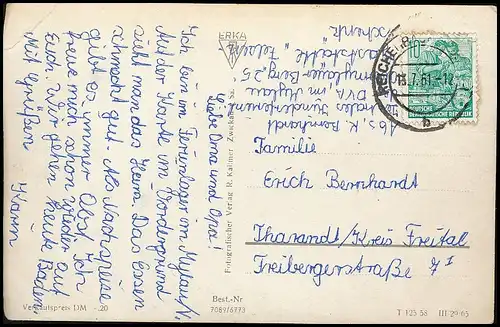 Liebe Oma und Opa!
Ich bin im Ferienlager in Mylau.
Auf der Karte im Vordergrund
sieht man das Heim. Das Essen
schmeckt gut. Als Nachspeise
gibt es immer Obst. Ich
freue mich schon wieder auf
Euch. Wir gehen heute Baden.
Mit Grüßen
Karin
Abs. K. Bernhardt
Kinderferienl.
in Mylau
Mylauer-Berg 25
Gaststätte "Felsen
schenk
ERKA
Fotografischer Verlag R. Kallmer Zwickau Sa.
Best.-Nr
7089/6773
Verkaufspreis DM -.20
REICHE
13.7.61-12
b
10
DEUTSCHE
DEMOKRATISCHE REPUBLIK
Familie
Erich Bernhardt
Tharandt/Kreis Freital
Freibergerstraße 7 I
T 125 58 III-29-65